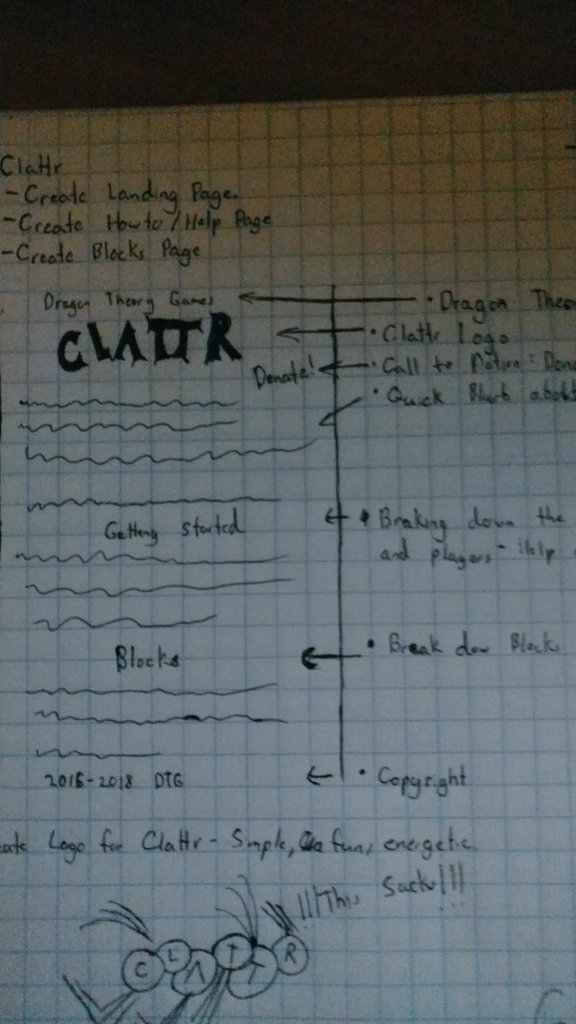 Clattr
- Create Landing Page.
- Create How to / Help Page
- Create Blocks Page
Dragon Theory Games
• Dragon Theo
CLATTR
• Clattr Logo
Donate!
• Call to Action: Dona
• Quick Blurb about
Getting Started
• Braking down the
and players - Help
Blocks
• Break dow Block
2016-2018 DTG
• Copyright
ate Logo for Clattr - Simple, fun, energetic.
!!!This Sucks!!!
C L A T T R